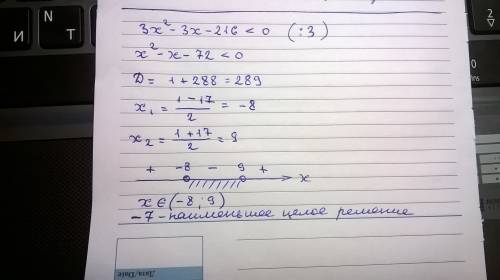 И N Т 2
3x² - 3x - 216 < 0 (:3)
x² - x - 72 < 0
D = 1 + 288 = 289
x₁ = (1 - 17)/2 = -8
x₂ = (1 + 17)/2 = 9
+ -8 - 9 + x
x ∈ (-8; 9)
-7 - наименьшее целое решение
Дата/Date